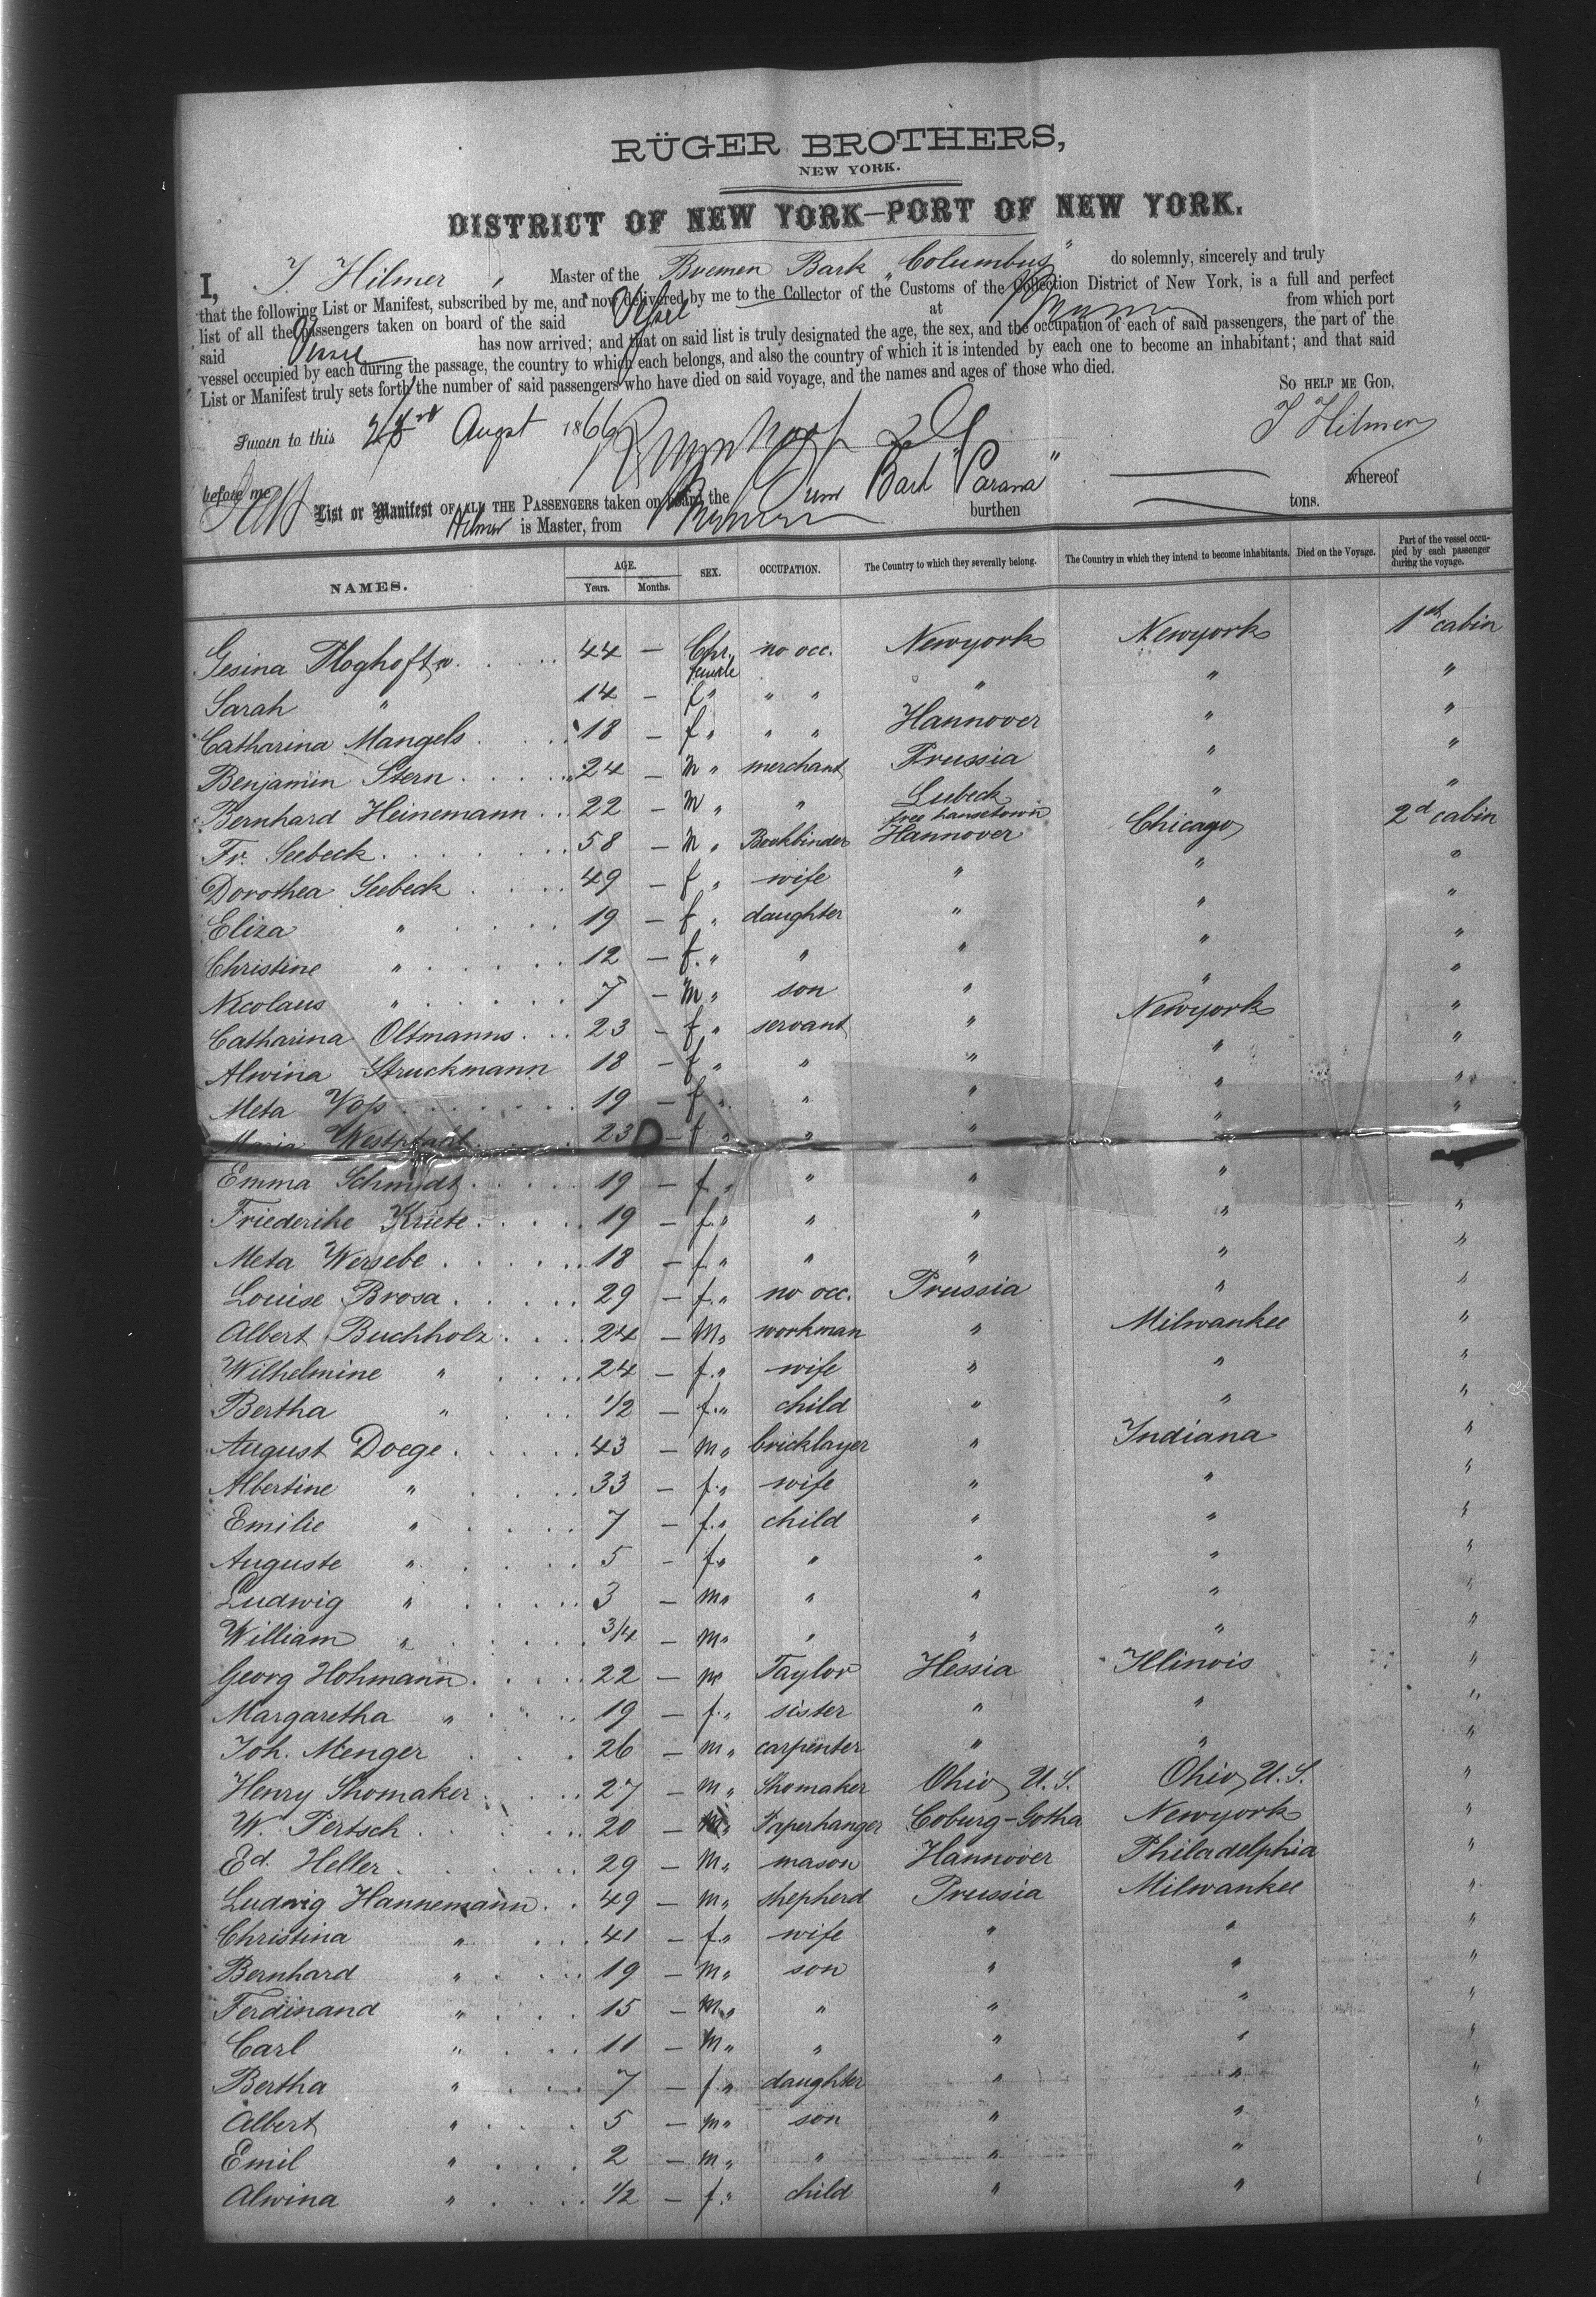 RÜGER BROTHERS,
NEW YORK.
DISTRICT OF NEW YORK—PORT OF NEW YORK.
I, J. Hilmer, Master of the Bremen Bark "Columbus" do solemnly, sincerely and truly
that the following List or Manifest, subscribed by me, and now delivered by me to the Collector of the Customs of the Collection District of New York, is a full and perfect
list of all the passengers taken on board of the said at Bremen from which port
said has now arrived; and that on said list is truly designated the age, the sex, and the occupation of each of said passengers, the part of the
vessel occupied by each during the passage, the country to which each belongs, and also the country of which it is intended by each one to become an inhabitant; and that said
List or Manifest truly sets forth the number of said passengers who have died on said voyage, and the names and ages of those who died.
So HELP ME GOD,
Sworn to this Augst 1866 J Hilmer
before me
List or Manifest OF ALL THE PASSENGERS taken on board the Bark "Parana" whereof
Hilmer is Master, from Bremen burthen tons.
NAMES. AGE. Years. Months. SEX. OCCUPATION. The Country to which they severally belong. The Country in which they intend to become inhabitants. Died on the Voyage. Part of the vessel occupied by each passenger during the voyage.
Gesina Ploghoft 44 — female no occ. Newyork Newyork 1st cabin
Sarah " 14 — f " " " " " "
Catharina Mangels 18 — f " " " Hannover " "
Benjamin Stern 24 — m " merchant Prussia " "
Bernhard Heinemann 22 — M " " Lubeck free hansetown " "
Fr. Seebeck 58 — M " Bookbinder Hannover Chicago 2d cabin
Dorothea Seebeck 49 — f " wife " " "
Eliza " 19 — f " daughter " " "
Christine " 12 — f. " " " " "
Nicolaus " 7 — M " son " " "
Catharina Oltmanns 23 — f " servant " Newyork "
Alwina Struckmann 18 — f " " " " "
Meta Voss 19 — f " " " " "
Maria Westpfahl 23 — f " " " " "
Emma Schmidt 19 — f " " " "
Friederike Kriete 19 — f. " " " " "
Meta Wersebe 18 — f. " " " " "
Louise Brosa 29 — f. " no occ. Prussia " "
Albert Buchholz 24 — M " workman " Milwankee "
Wilhelmine " 24 — f. " wife " " "
Bertha " 1/2 — f. " child " " "
August Doege 43 — M " bricklayer " Indiana "
Albertine " 33 — f. " wife " " "
Emilie " 7 — f. " child " " "
Auguste " 5 — f " " " " "
Ludwig " 3 — m " " " " "
William " 3/4 — M " " " " "
Georg Hohmann 22 — m Taylor Hessia Illinois "
Margaretha " 19 — f. " sister " " "
Joh. Menger 26 — m " carpenter " " "
Henry Shomaker 27 — M " Shomaker Ohio U.S. Ohio U.S. "
W. Pertsch 20 — M " Paperhanger Coburg-Gotha Newyork "
Ed. Heller 29 — M " mason Hannover Philadelphia "
Ludwig Hannemann 49 — M " shepherd Prussia Milwankee "
Christina " 41 — f. " wife " " "
Bernhard " 19 — M " son " " "
Ferdinand " 15 — M " " " " "
Carl " 11 — M " " " " "
Bertha " 7 — f. " daughter " " "
Albert " 5 — m " son " " "
Emil " 2 — m " " " " "
Alwina " 1/2 — f. " child " " "